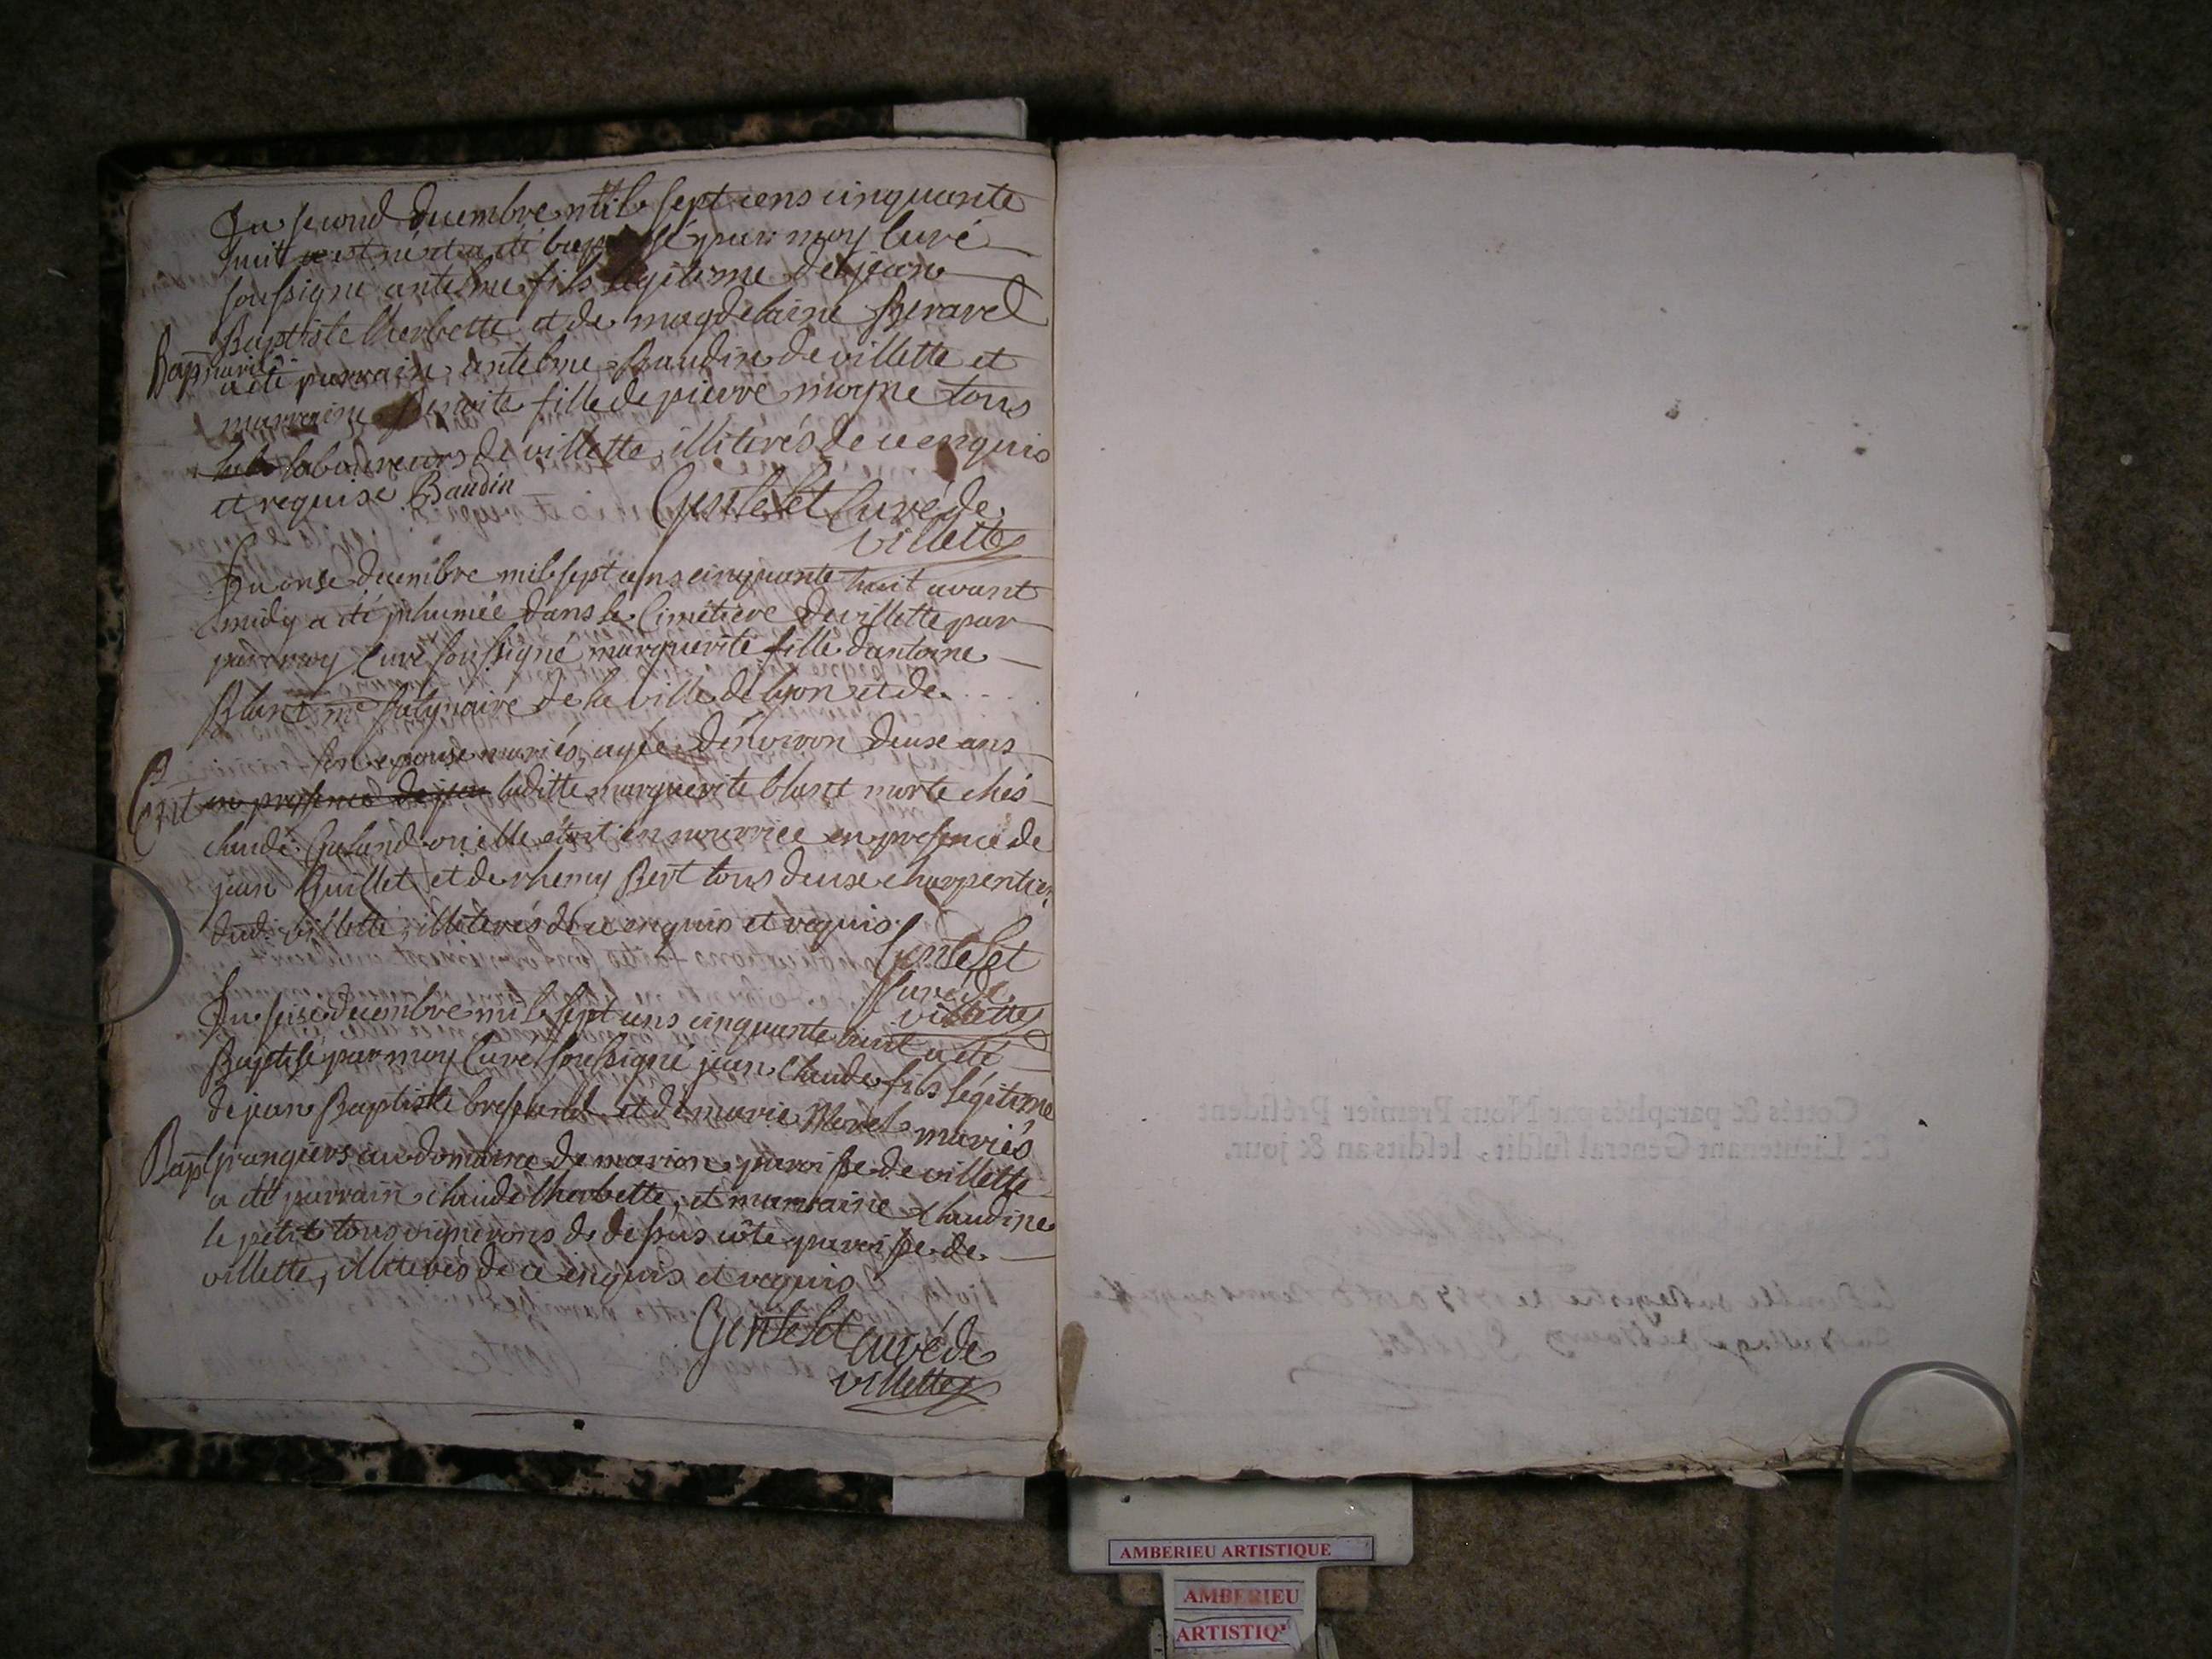 Du second decembre mile sept cens cinquante
huit est né et a été baptisé par moy curé
soussigné antelme fils légitime de jean
Baptiste lherbette et de magdelaine Beravel
Bap mariés
a été parrain antelme Baudin de villette et
marraine Benoite fille de pierre moyne tous
laboureurs de villette, illiterés de ce enquis
et requise Baudin
Gentelet Curé de
villette
Du onse decembre mil sept cens cinquante huit avant
midy a été inhumée dans le Cimetiere de villette par
par moy Curé soussigné marguerite fille dantoine
Blanc me de la ville de lyon et de
son epouse mariés, agée d'environ deuse ans
Ent en presence de jean laditte marguerite blanc morte chés
claude Galand ou elle étoit en nourrice en presence de
jean Guillet et de rhemy Bert tous deuse charpentier
dud. villette, illiterés de ce enquis et requis
Gentelet
Curé de
villette
Du seise decembre mile sept cens cinquante huit a été
Baptisé par moy Curé soussigné jean Claude fils légitime
de jean Baptiste et de marie Morel mariés
Bap grangiers au domaine de marion paroisse de villette
a été parrain claude lherbette, et marraine claudine
le petit tous vignerons de dessus côte paroisse de
villette, illiterés de ce enquis et requis
Gentelet curé de
villette
Cottés & paraphés par Nous Premier Président
& Lieutenant General susdit, lesdits an & jour.
AMBERIEU ARTISTIQUE
AMBERIEU
ARTISTIQ